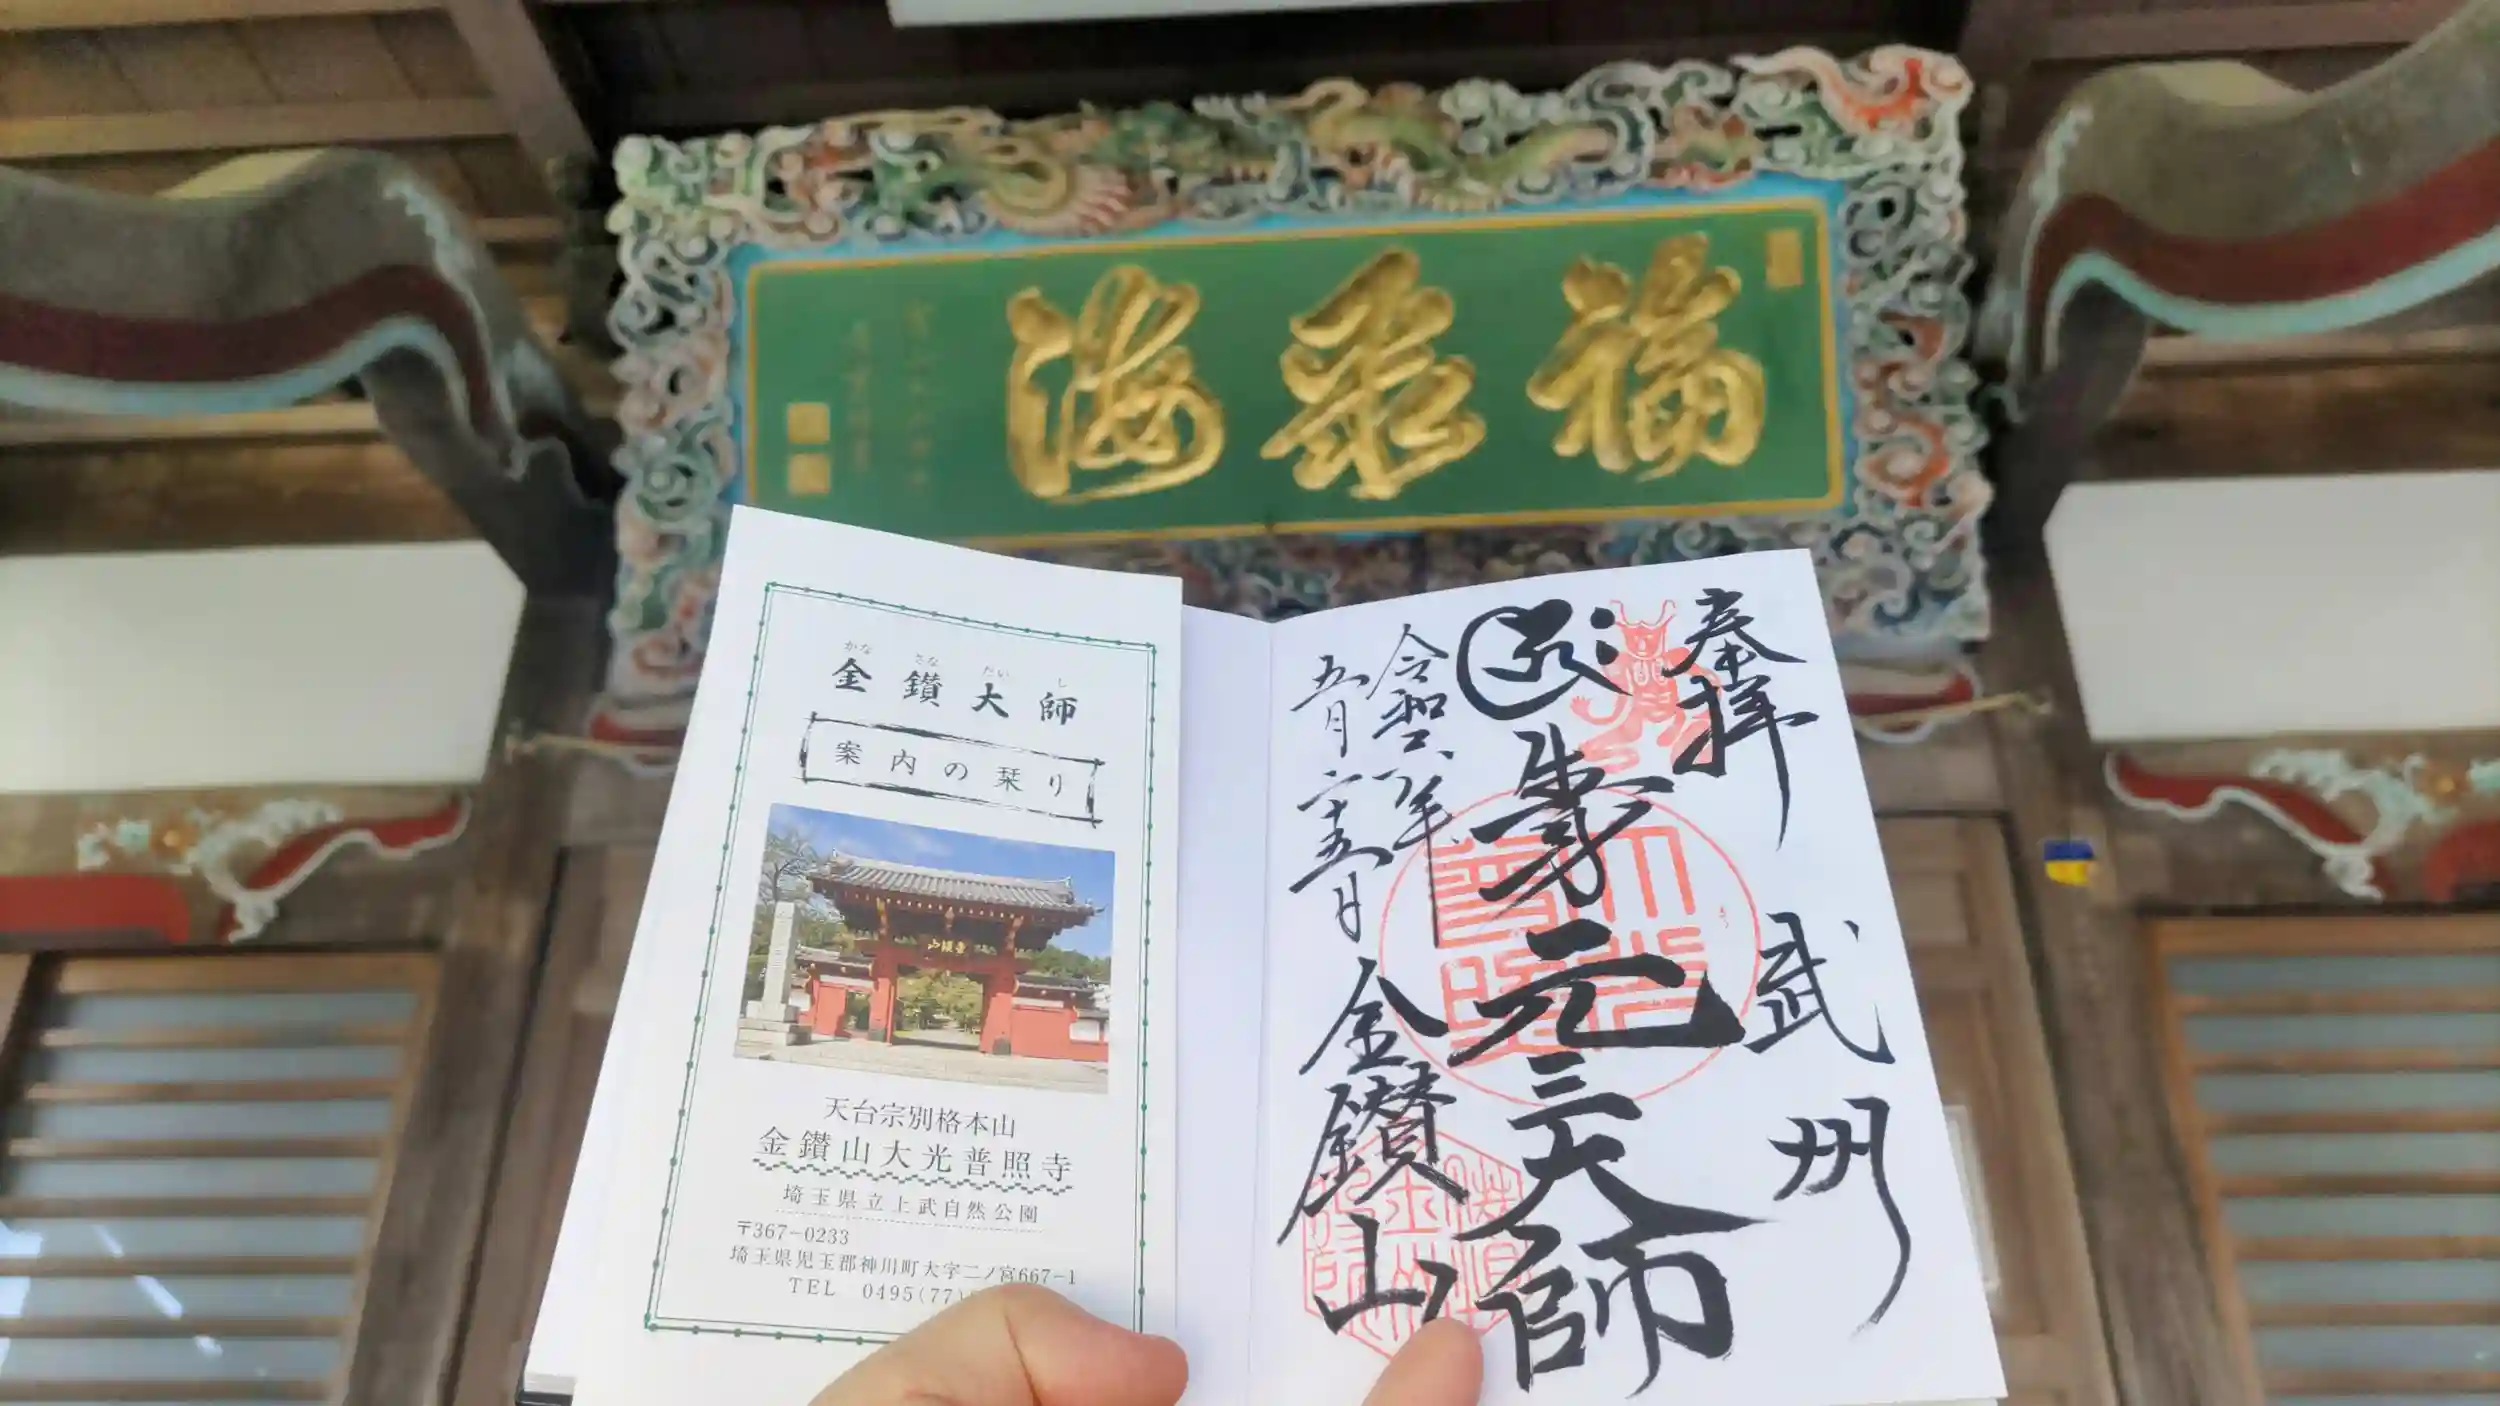 福聚海
かな さな だい し
金鑚大師
案内の栞り
天台宗別格本山
金鑚山大光普照寺
埼玉県立上武自然公園
〒367-0233
埼玉県児玉郡神川町大字二ノ宮667-1
TEL 0495(77)
奉拝
武州
元三大師
令和六年
五月二十五日
金鑚山